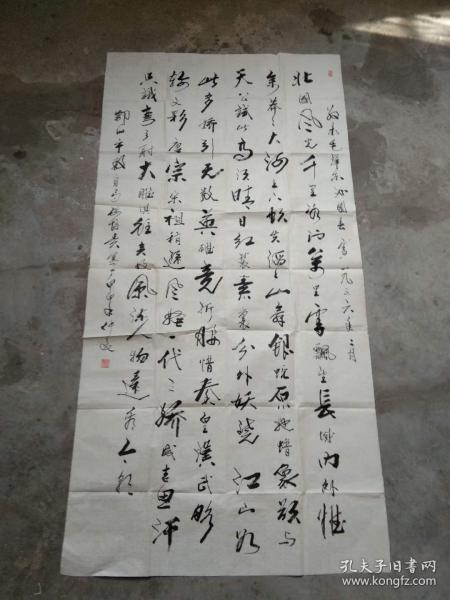 毛泽东沁园春雪一九三六年二月
北国风光千里冰封万里雪飘望长城内外惟
余莽々大河上下顿失滔々山舞银蛇原驰蜡象欲与
天公试比高须晴日红装素裹分外妖娆江山如
此多娇引无数英雄竞折腰惜秦皇汉武略
输文彩唐宗宋祖稍逊风骚一代天骄成吉思汗
只识弯弓射大雕俱往矣数风流人物还看今朝
孔夫子旧书网
www.kongfz.com